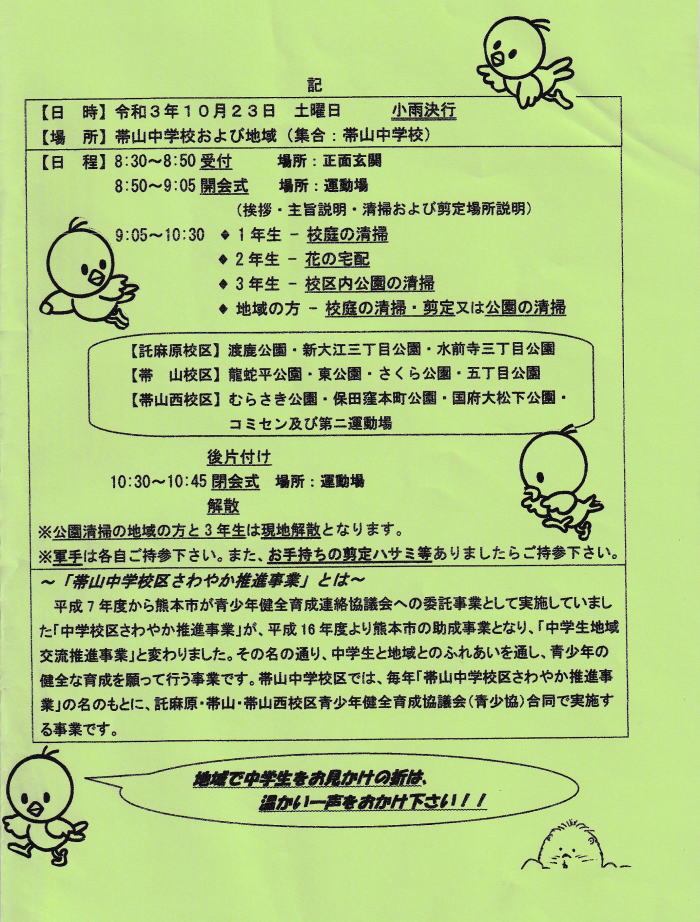 記
【日　時】令和３年１０月２３日　土曜日　　小雨決行
【場　所】帯山中学校および地域（集合：帯山中学校）
【日　程】8:30～8:50 受付　　場所：正面玄関
8:50～9:05 開会式　　場所：運動場
（挨拶・主旨説明・清掃および剪定場所説明）
9:05～10:30　◆ 1 年生 − 校庭の清掃
◆ 2 年生 − 花の宅配
◆ 3 年生 − 校区内公園の清掃
◆ 地域の方 − 校庭の清掃・剪定又は公園の清掃
【託麻原校区】渡鹿公園・新大江三丁目公園・水前寺三丁目公園
【帯　山校区】龍蛇平公園・東公園・さくら公園・五丁目公園
【帯山西校区】むらさき公園・保田窪本町公園・国府大松下公園・
コミセン及び第二運動場
後片付け
10:30～10:45 閉会式　場所：運動場
解散
※公園清掃の地域の方と 3 年生は現地解散となります。
※軍手は各自ご持参下さい。また、お手持ちの剪定ハサミ等ありましたらご持参下さい。
～「帯山中学校区さわやか推進事業」とは～
平成 7 年度から熊本市が青少年健全育成連絡協議会への委託事業として実施していまし
た「中学校区さわやか推進事業」が、平成 16 年度より熊本市の助成事業となり、「中学生地域
交流推進事業」と変わりました。その名の通り、中学生と地域とのふれあいを通し、青少年の
健全な育成を願って行う事業です。帯山中学校区では、毎年「帯山中学校区さわやか推進事
業」の名のもとに、託麻原・帯山・帯山西校区青少年健全育成協議会（青少協）合同で実施す
る事業です。
地域で中学生をお見かけの折は、
温かい一声をおかけ下さい！！